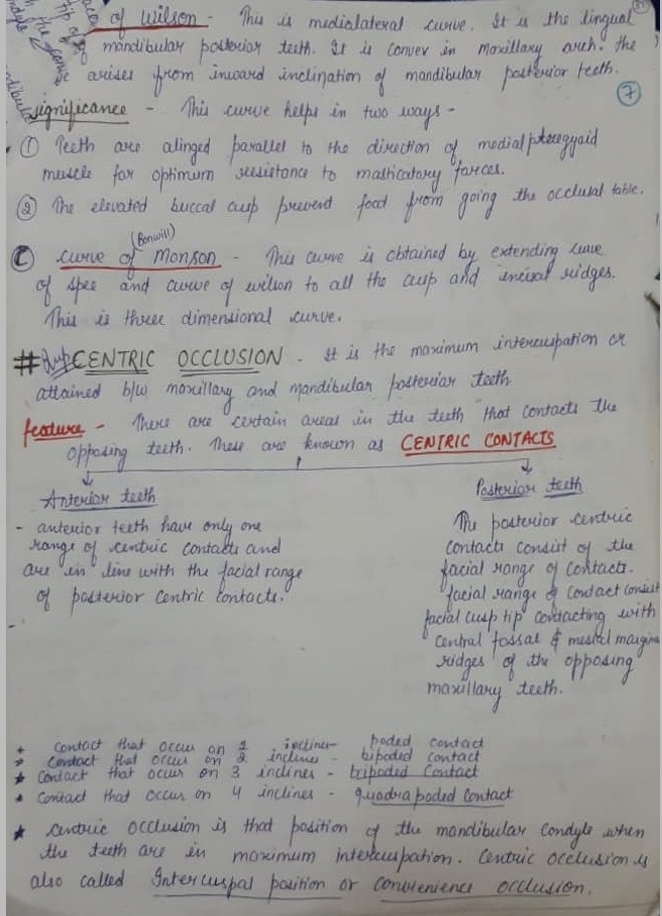 of Wilson - This is mediolateral curve. It is the lingual
tip of
mandibular posterior teeth. It is convex in maxillary arch. The
arises from inward inclination of mandibular posterior teeth.
7
significance - This curve helps in two ways -
① Teeth are alinged parallel to the direction of medial pteregyoid
muscle for optimum resistance to masticatory forces.
② The elevated buccal cusp prevent food from going the occlusal table.
(Bonwill)
C curve of Monson - This curve is obtained by extending curve
of spee and curve of wilson to all the cusp and incisal ridges.
This is three dimensional curve.
# Imp CENTRIC OCCLUSION - It is the maximum intercuspation or
attained b/w maxillary and mandibular posterior teeth
feature - There are certain areas in the teeth that contacts the
opposing teeth. These are known as CENTRIC CONTACTS
Anterior teeth
- anterior teeth have only one
range of centric contacts and
are in line with the facial range
of posterior centric contacts.
-
Posterior teeth
The posterior centric
contacts consist of the
facial range of contacts.
facial range of contact consist
facial cusp tip contacting with
central fossae & mesial margina
ridges of the opposing
maxillary teeth.
* contact that occur on 1 incliner- poded contact
* Contact that occur on 2 inclines - bipoded contact
* Contact that occur on 3 inclines - tripoded contact
* Contact that occur on 4 inclines - quadrapoded contact
* Centric occlusion is that position of the mandibular condyle when
the teeth are in maximum intercuspation. Centric occlusion is
also called Intercuspal position or convenience occlusion.